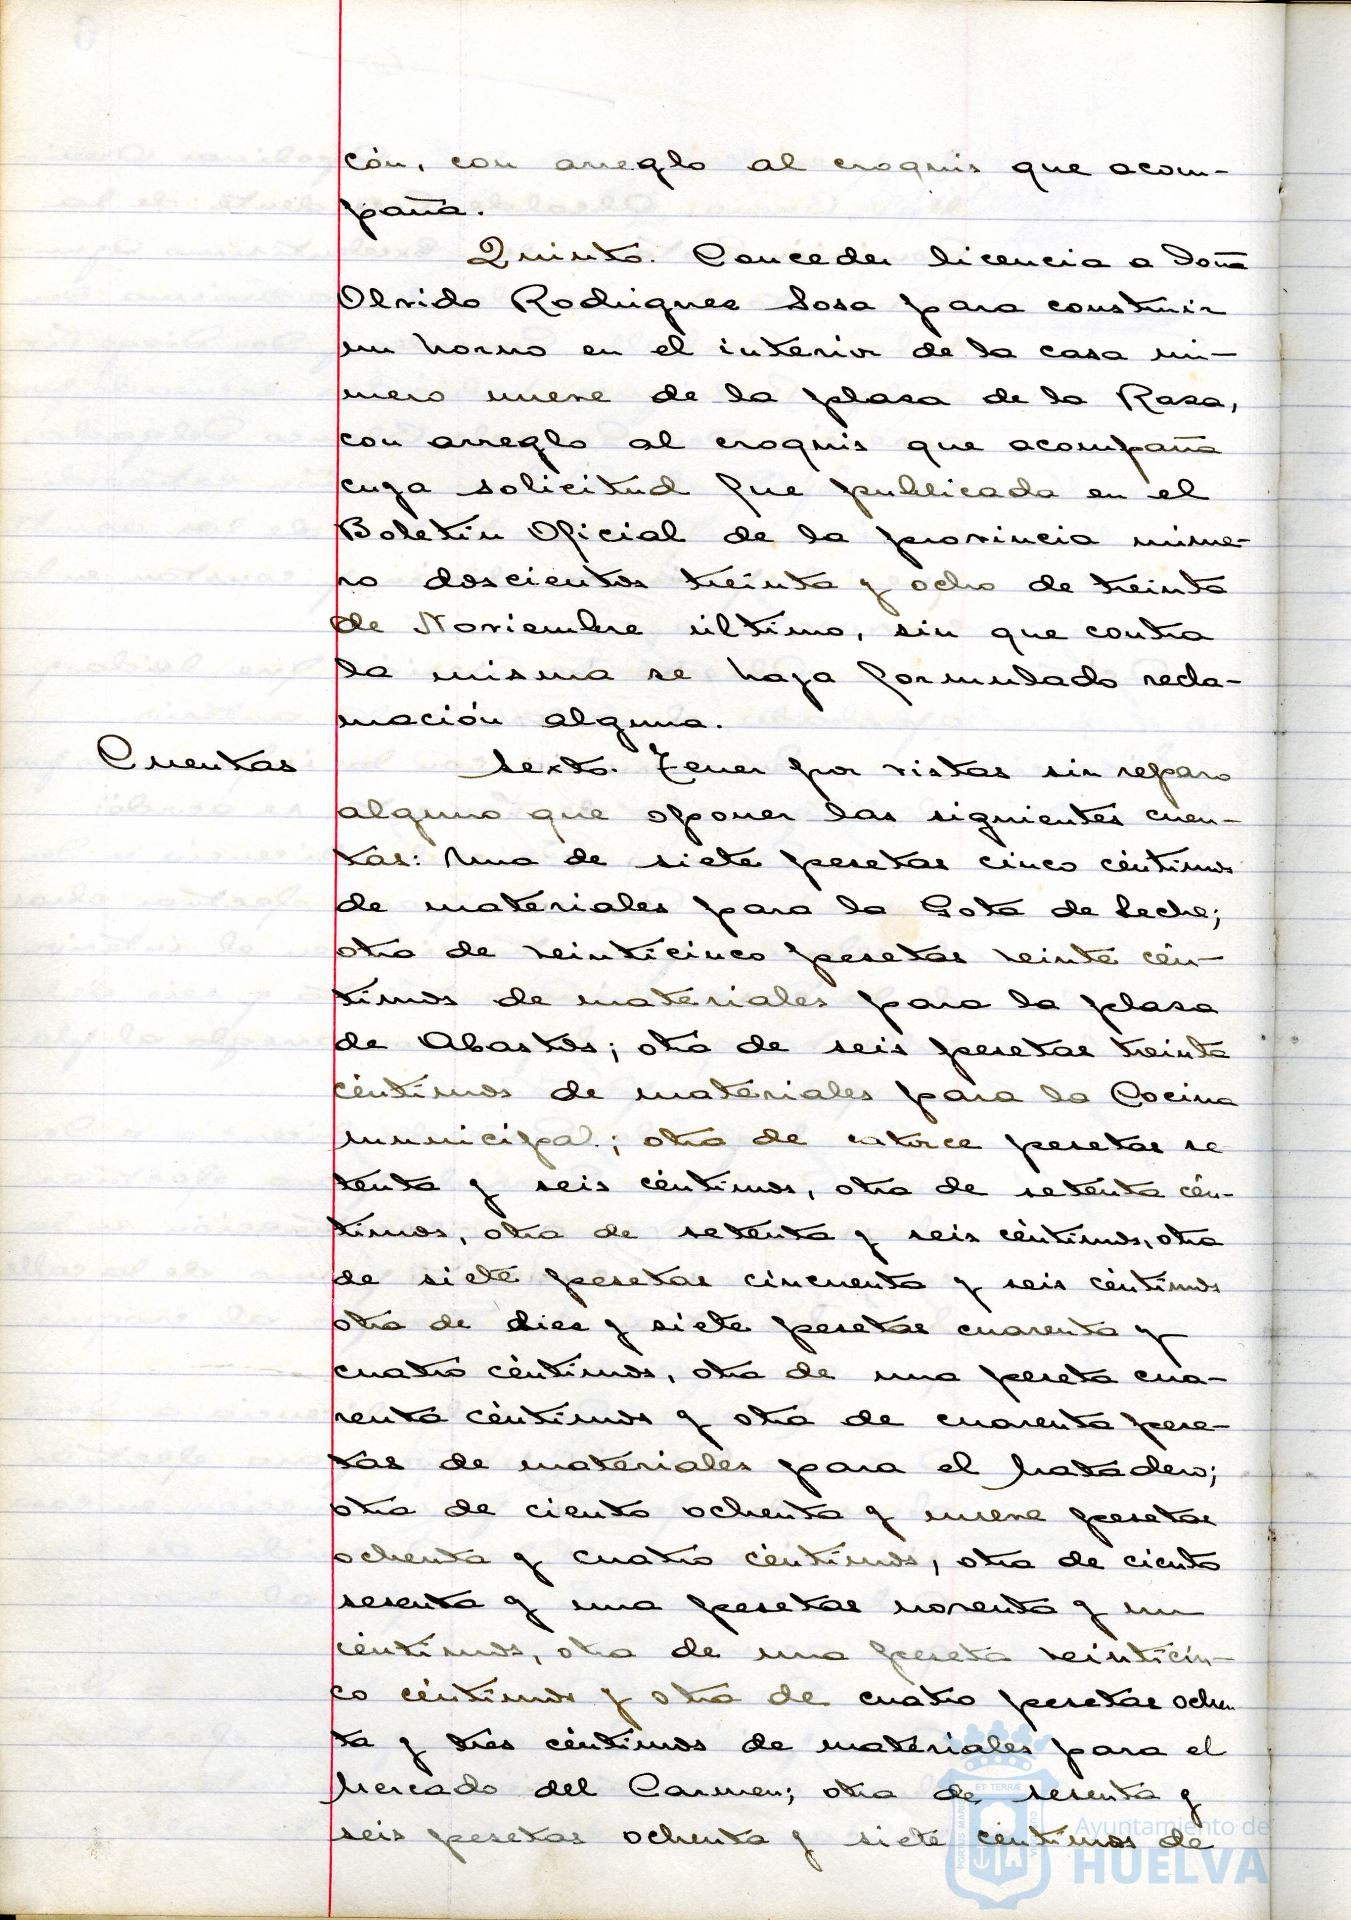 cón, con arreglo al croquis que acom-
paña.
Quinto. Conceder licencia a Doña
Olvido Rodriguez Sosa para construir
un horno en el interior de la casa nú-
mero nueve de la plaza de la Rasa,
con arreglo al croquis que acompaña
cuya solicitud fue publicada en el
Boletín Oficial de la provincia núme-
ro doscientos treinta y ocho de treinta
de Noviembre último, sin que contra
la misma se haya formulado recla-
mación alguna.
Cuentas
Sexto. Tener por vistas sin reparo
alguno que oponer las siguientes cuen-
tas: Una de siete pesetas cinco céntimos
de materiales para la Gota de Leche;
otra de veinticinco pesetas veinte cén-
timos de materiales para la plaza
de Abastos; otra de seis pesetas treinta
céntimos de materiales para la Cocina
municipal; otra de catorce pesetas se
tenta y seis céntimos, otra de setenta cén-
timos, otra de setenta y seis céntimos, otra
de siete pesetas cincuenta y seis céntimos
otra de diez y siete pesetas cuarenta y
cuatro céntimos, otra de una peseta cua-
renta céntimos y otra de cuarenta pese-
tas de materiales para el Matadero;
otra de ciento ochenta y nueve pesetas
ochenta y cuatro céntimos, otra de ciento
sesenta y una pesetas noventa y un
céntimos, otra de una peseta veinticin-
co céntimos y otra de cuatro pesetas ochen
ta y tres céntimos de materiales para el
Mercado del Carmen; otra de sesenta y
seis pesetas ochenta y siete céntimos de
Ayuntamiento de
HUELVA